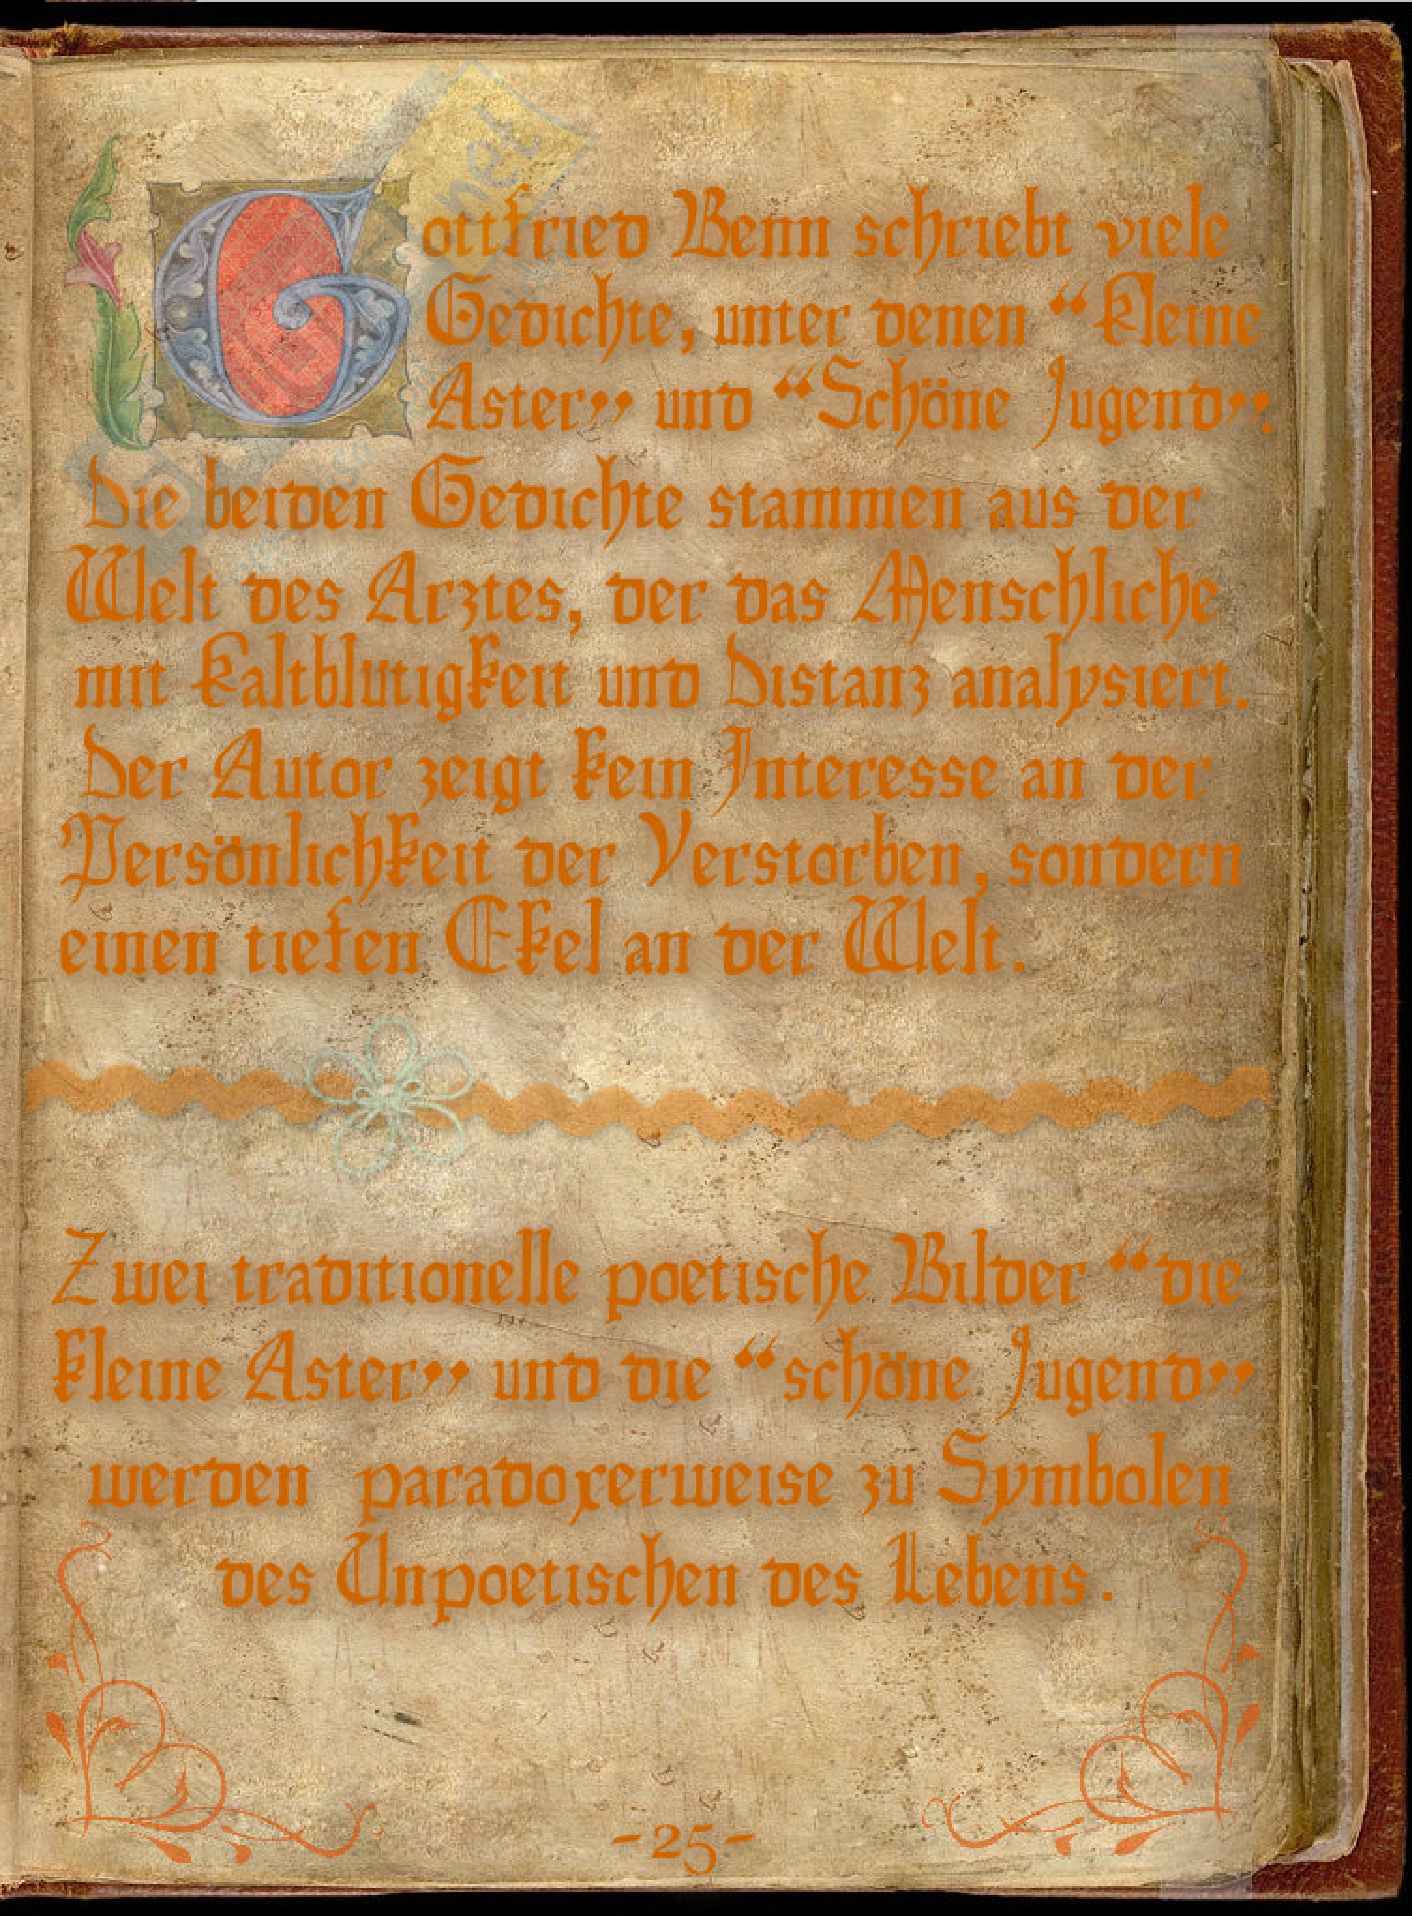 Gottfried Benn schriebt viele
Gedichte, unter denen “Kleine
Aster” und “Schöne Jugend”.
Die beiden Gedichte stammen aus der
Welt des Arztes, der das Menschliche
mit Kaltblutigkeit und Distanz analysiert.
Der Autor zeigt kein Interesse an der
Persönlichkeit der Verstorben, sondern
einen tiefen Ekel an der Welt.
Zwei traditionelle poetische Bilder “die
kleine Aster” und die “schöne Jugend”
werden paradoxerweise zu Symbolen
des Unpoetischen des Lebens.
-25-